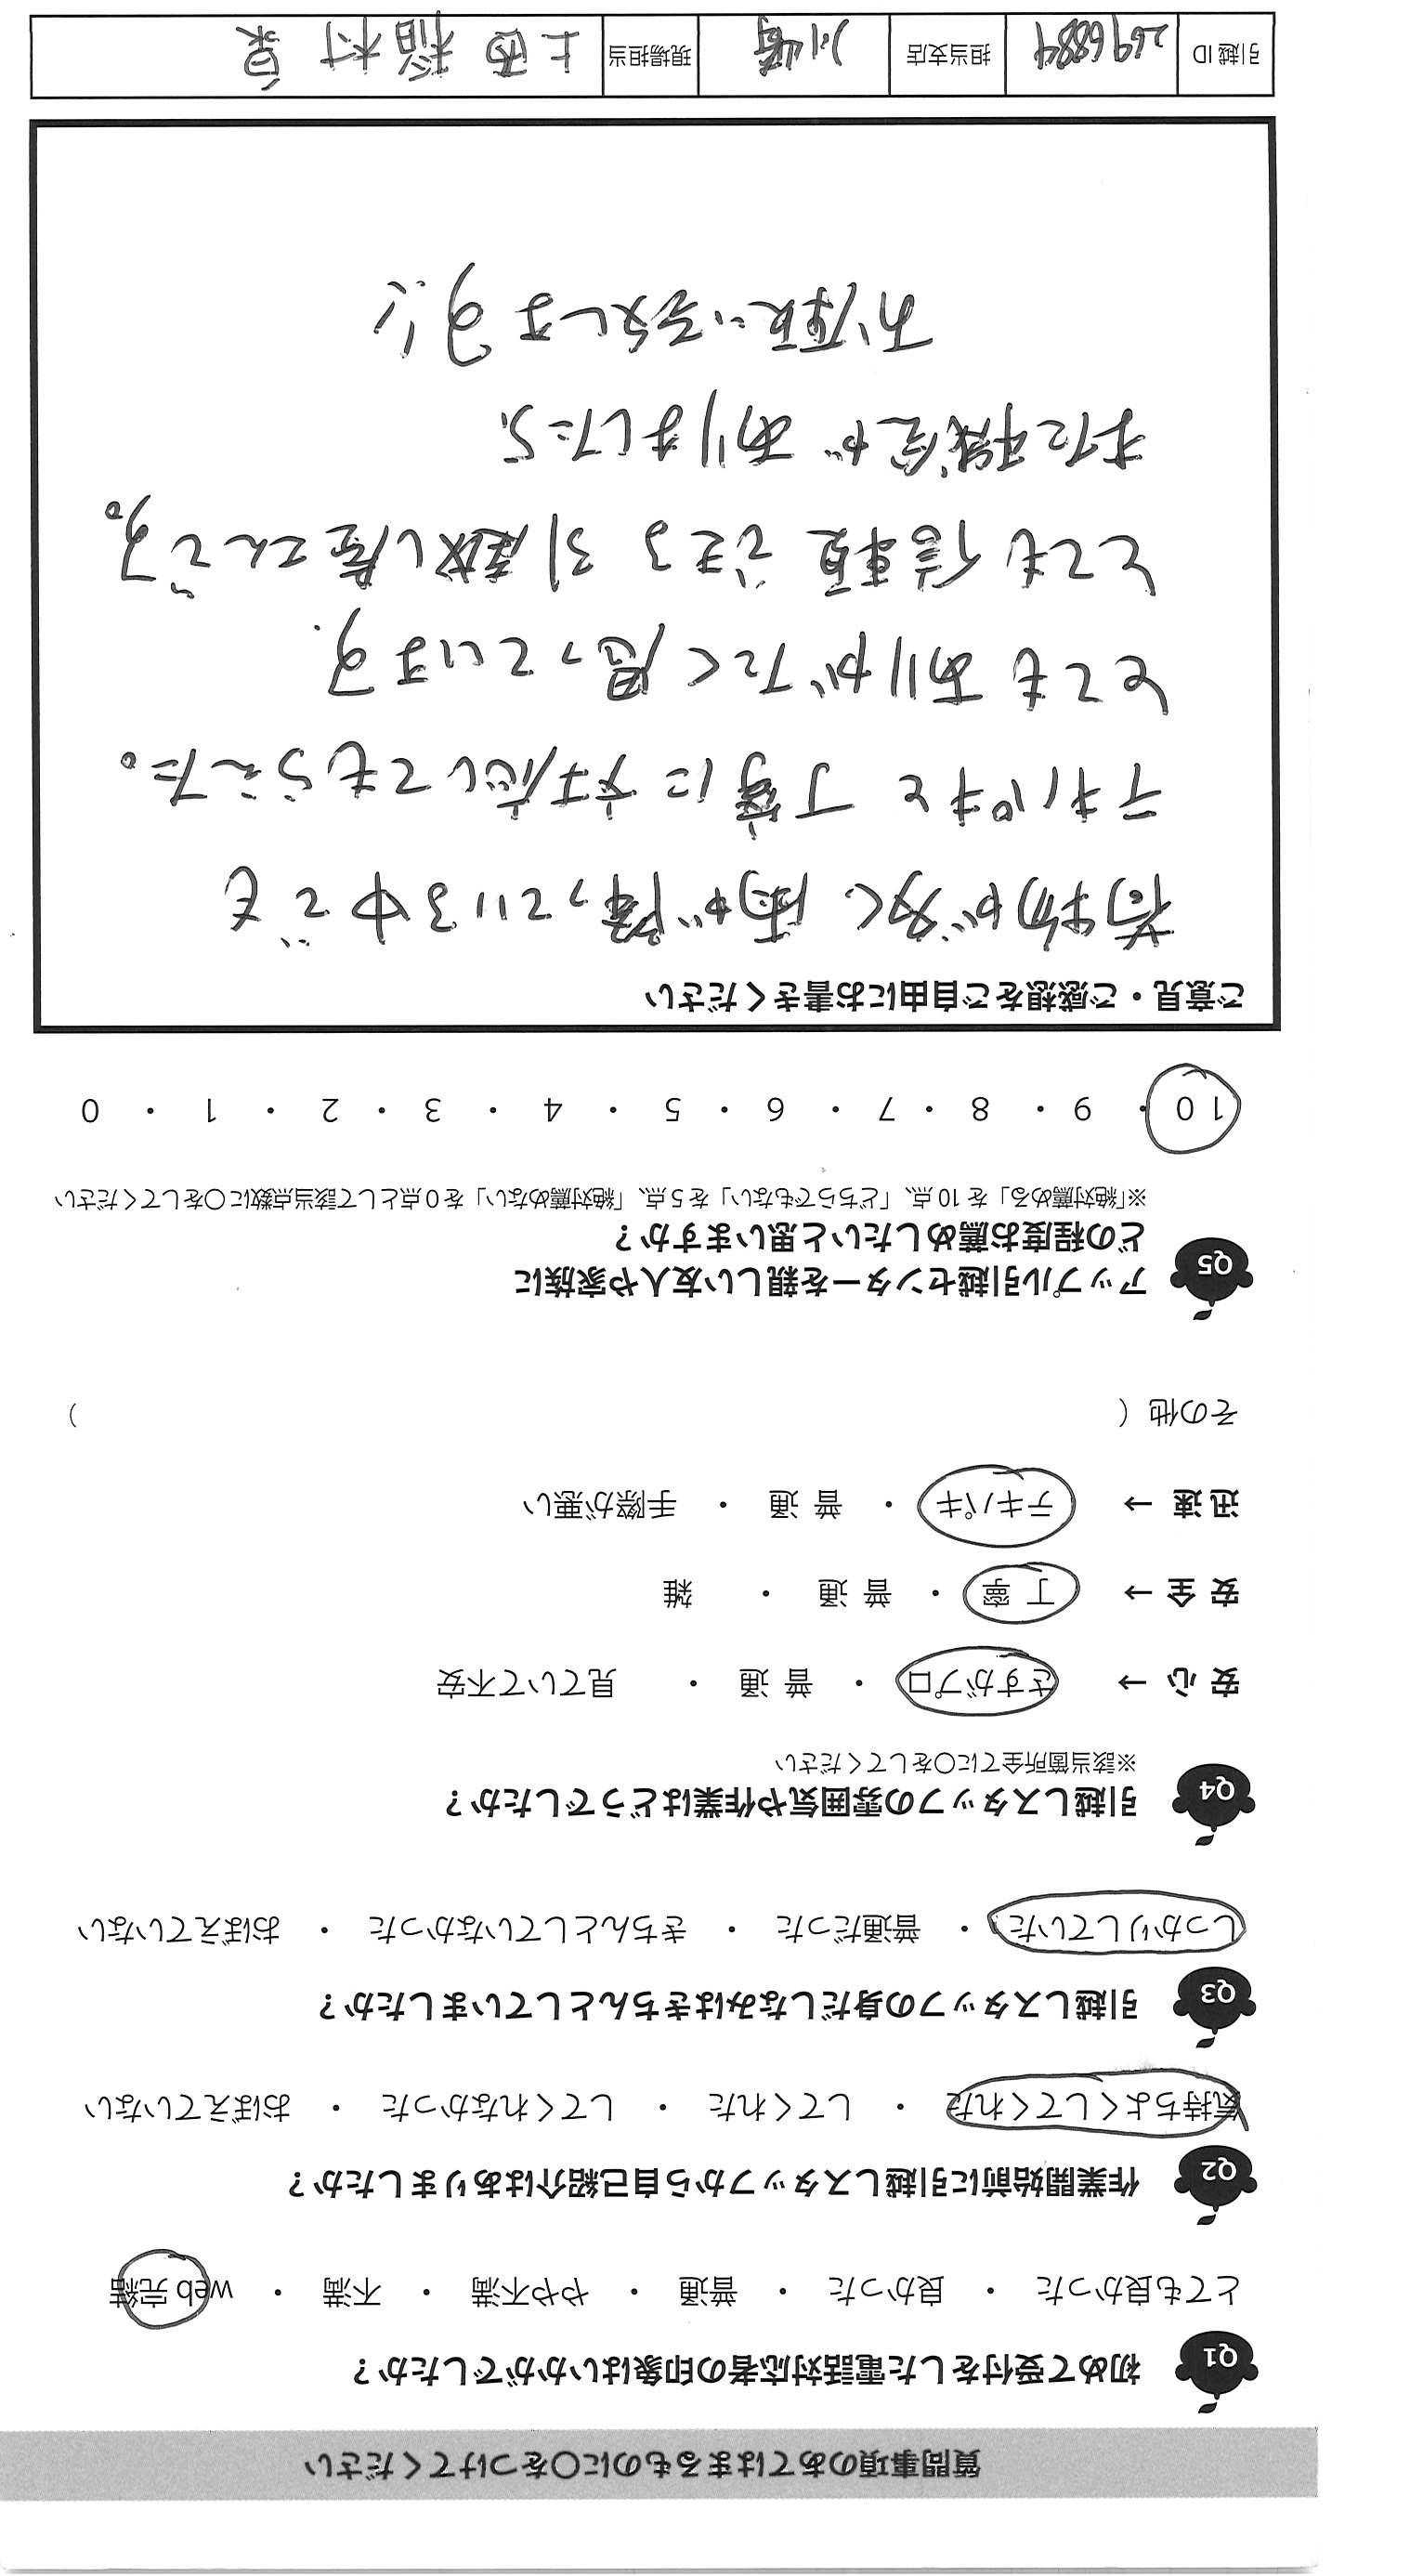 質問事項のあてはまるものに○をつけてください
Q1 初めて受付をした電話対応者の印象はいかがでしたか？
とても良かった ・ 良かった ・ 普通 ・ やや不満 ・ 不満 ・ web 完結
Q2 作業開始前に引越しスタッフから自己紹介はありましたか？
気持ちよくしてくれた ・ してくれた ・ してくれなかった ・ おぼえていない
Q3 引越しスタッフの身だしなみはきちんとしていましたか？
しっかりしていた ・ 普通だった ・ きちんとしていなかった ・ おぼえていない
Q4 引越しスタッフの雰囲気や作業はどうでしたか？
※該当箇所全てに○をしてください
安 心 → さすがプロ ・ 普 通 ・ 見ていて不安
安 全 → 丁 寧 ・ 普 通 ・ 雑
迅 速 → テキパキ ・ 普 通 ・ 手際が悪い
その他（ ）
Q5 アップル引越センターを親しい友人や家族に
どの程度お薦めしたいと思いますか？
※「絶対薦める」を 10 点、「どちらでもない」を 5 点、「絶対薦めない」を 0 点として該当点数に○をしてください
10 ・ 9 ・ 8 ・ 7 ・ 6 ・ 5 ・ 4 ・ 3 ・ 2 ・ 1 ・ 0
ご意見・ご感想をご自由にお書きください
荷物が多く、雨が降っている中でも
テキパキと丁寧に対応してもらえた。
とてもありがたく思っています。
とても信頼できる引越し屋さんです。
また機会がありましたら
お願い致します!!
引越 ID 2696884 担当支店 川崎 現場担当 上西 稲村 泉